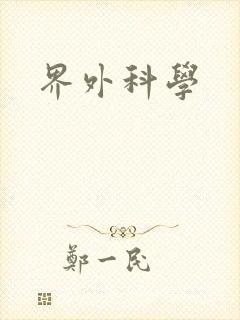 界外科學
鄭一民